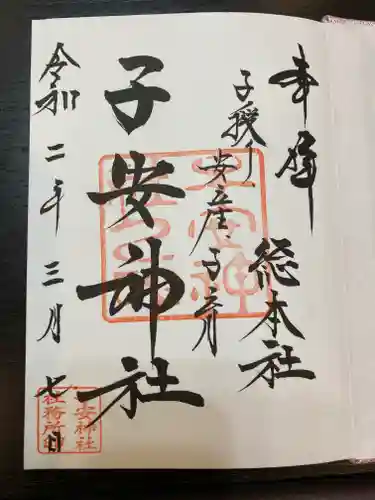 奉拝
子授け 安産 子育
総本社
子安神社
令和二年三月七日
子安神社
社務所印